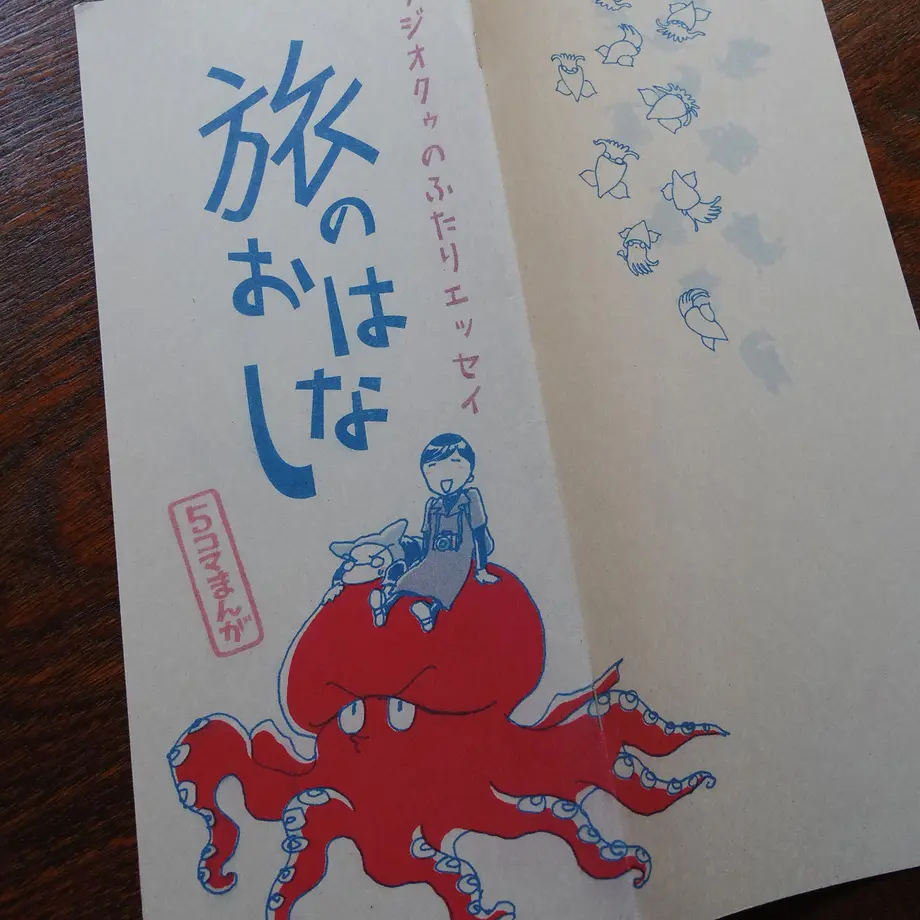 ジオクゥのふたりエッセイ
旅のおはなし
5コママンガ